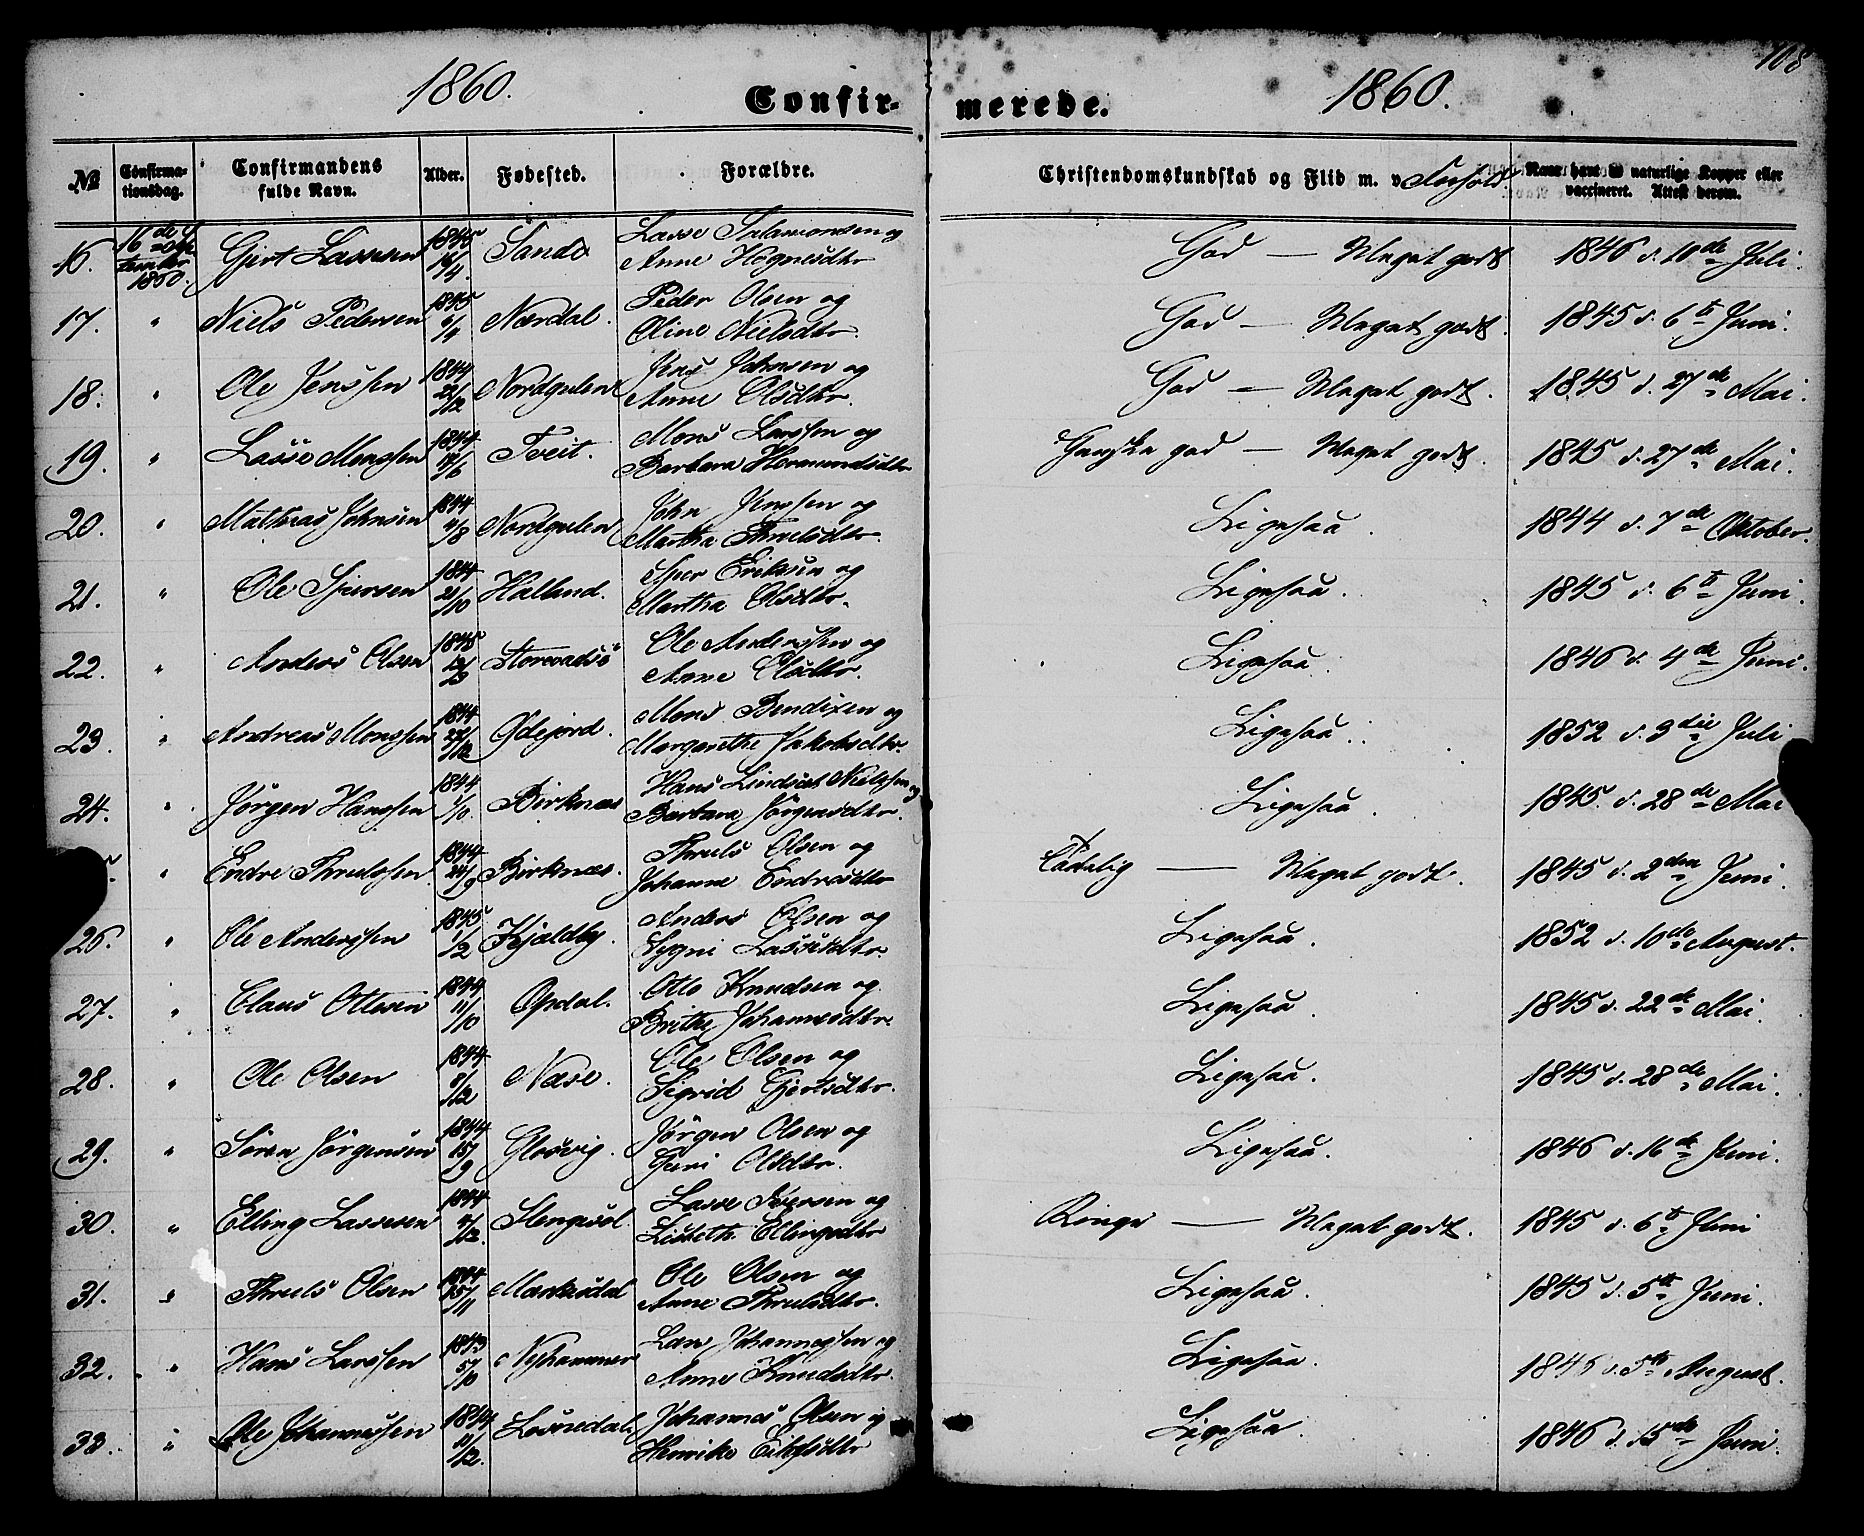 1860. Confir- merede. 1860. 108
№ Confirma-tionsdag. Confirmandens fulde Navn. Alder. Fødested. Forældre. Christendomskundskab og Flid m. v. Forhold Naar havt de naturlige Kopper eller vaccineret. Attest derom.
16. 16de 1860. Gjert Lassesen 1845 Sande Lasse Salamonsen og Anne Hognesdtr God — Meget godt 1846 d. 10de Juli.
17. " Niels Pedersen 1845 Nærdal. Peder Olsen og Oline Nielsdtr. God — Meget godt. 1845 d. 6te Juni.
18. " Ole Jenssen 1844 21/12 Nordgulen Jens Johnsen og Anne Olsdtr. God — Meget godt. 1845 d. 27de Mai.
19. " Lasse Monssen 1844 Tveit. Mons Larssen og Barbara Hermundsdtr Ganske god — Meget godt. 1845 d. 27de Mai.
20. " Mathias Johnsen 1844 4/8 Nordgulen John Jenssen og Martha Thruelsdtr. Ligesaa. 1844 d. 7de Oktober.
21. " Ole Sjursen 1844 21/10 Halland. Sjur Eriksen og Martha Olsdtr. Ligesaa. 1845 d. 6te Juni.
22. " Anders Olsen 1845 Ole Anderssen og Anne Olsdtr. Ligesaa. 1846 d. 4de Juni.
23. " Andreas Monssen 1844 Ødejord. Mons Bendixen og Margarethe Jakobsdtr. Ligesaa. 1852 d. 3die Juli
24. " Jörgen Hanssen 1844 1/10 Birknæs Hans Lindsæt Nielssen og Barbara Jörgensdtr. Ligesaa. 1845 d. 28de Mai
" Endre Thruelssen 1844 24/9 Birknæs. Thruels Olsen og Johanne Endresdtr Taalelig — Meget godt. 1845 d. 2den Juni.
26. " Ole Anderssen 1845 1/2 Kjeldby. Anders Olsen og Sygni Lassesdtr. Ligesaa. 1852 d. 10de August.
27. " Claus Ottesen 1844 11/10 Opdal. Otto Knudsen og Brithe Johannesdtr. Ligesaa. 1845 d. 22de Mai.
28. " Ole Olsen 1844 8/12 Næse. Ole Olsen og Sigrid Gjertsdtr. Ligesaa. 1845 d. 28de Mai.
29. " Sören Jörgensen 1844 15/9 Glosvig. Jörgen Olsen og Guri Olsdtr. Ligesaa. 1846 d. 16de Juni.
30. " Elling Lassesen 1844 4/12. Stengesöl Lasse Iversen og Lisbeth Ellingsdtr Ringe — Meget godt. 1845 d. 6te Juni
31. " Thruels Olsen 1844 15/11 Mærkesdal Ole Olsen og Anne Thruelsdtr. Ligesaa. 1845 d. 5te Juni.
32. " Hans Larssen 1843 5/10 Nyhammer Lars Johannessen og Anne Knudsdtr. Ligesaa. 1846 d. 5te August.
33. " Ole Johannessen 1844 11/12. Lösnedal Johannes Olsen og Henrike Ligesaa. 1846 d. 15de Juni.